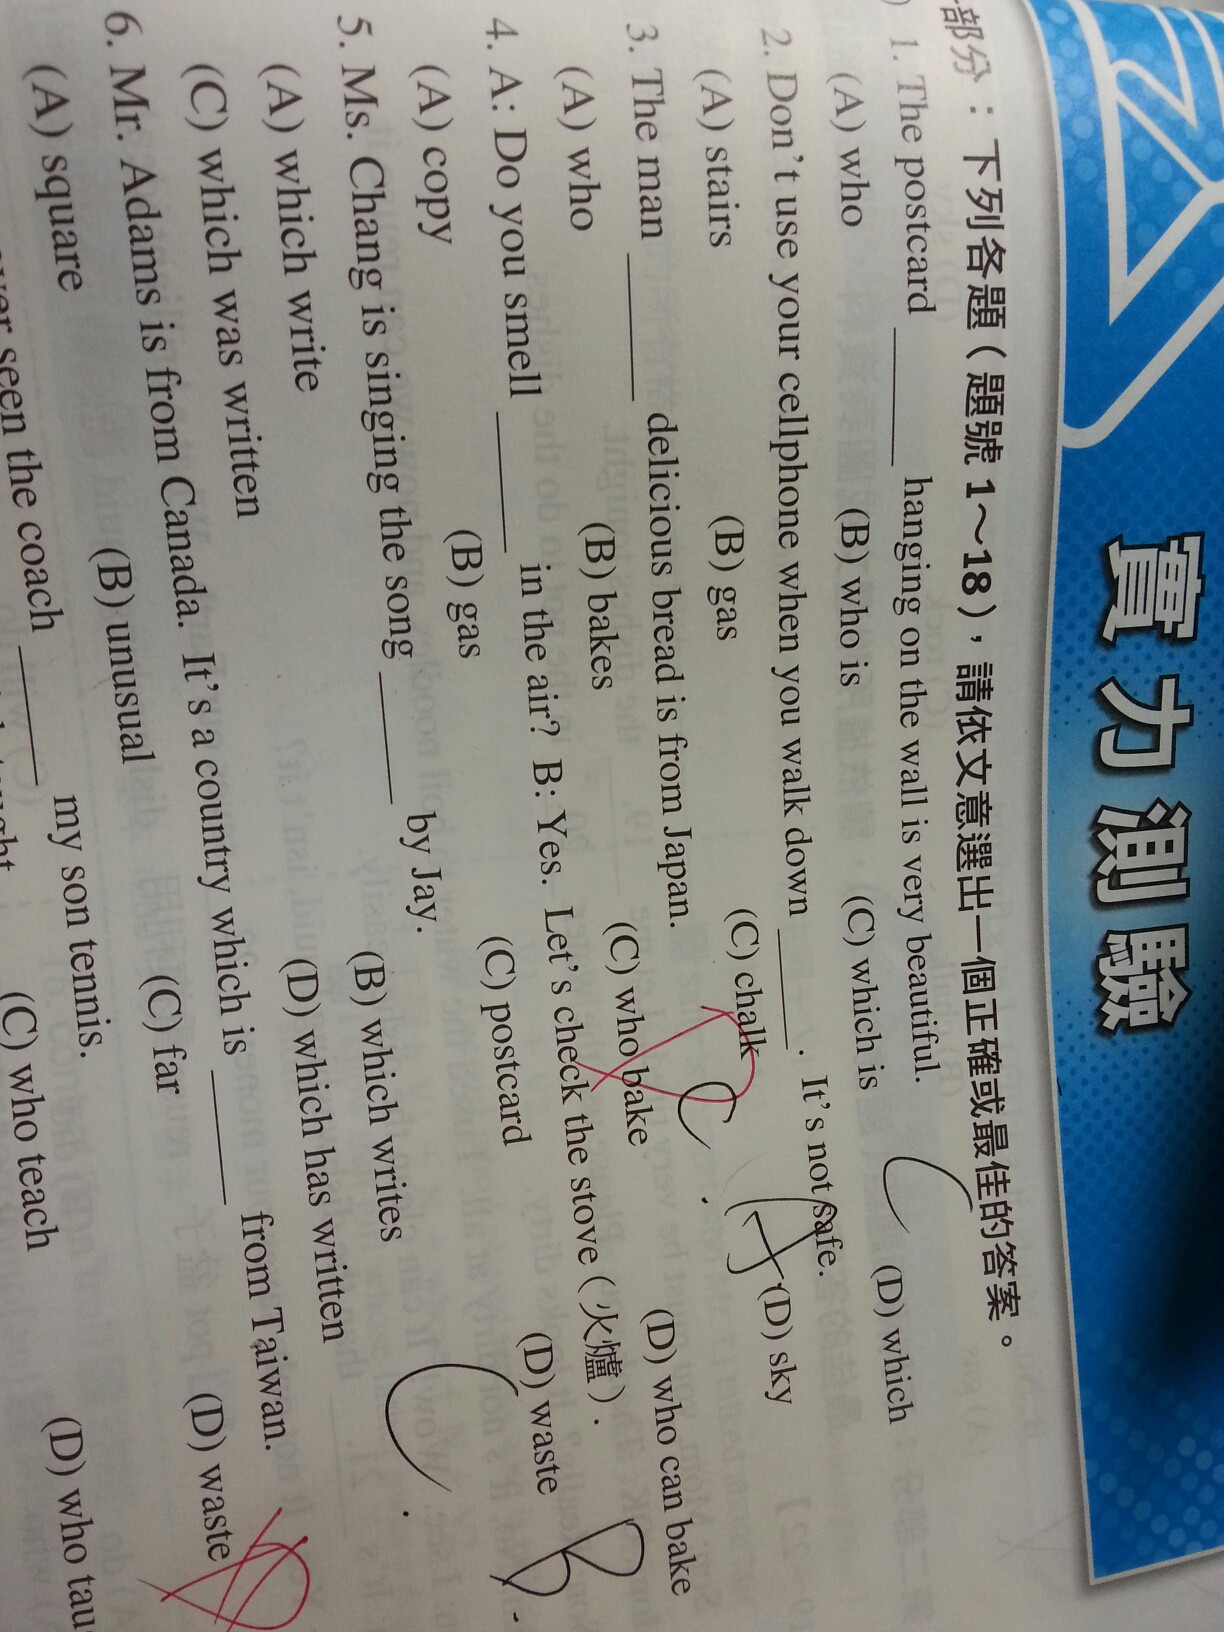 實力測驗
部分：下列各題（題號 1～18），請依文意選出一個正確或最佳的答案。
1. The postcard ______ hanging on the wall is very beautiful.
(A) who (B) who is (C) which is (D) which
C
2. Don't use your cellphone when you walk down ______. It's not safe.
(A) stairs (B) gas (C) chalk (D) sky
A
3. The man ______ delicious bread is from Japan.
(A) who (B) bakes (C) who bake (D) who can bake
C
4. A: Do you smell ______ in the air? B: Yes. Let's check the stove（火爐）.
(A) copy (B) gas (C) postcard (D) waste
B.
5. Ms. Chang is singing the song ______ by Jay.
(A) which write (B) which writes
(C) which was written (D) which has written
C.
6. Mr. Adams is from Canada. It's a country which is ______ from Taiwan.
(A) square (B) unusual (C) far (D) waste
seen the coach ______ my son tennis.
(C) who teach (D) who tau